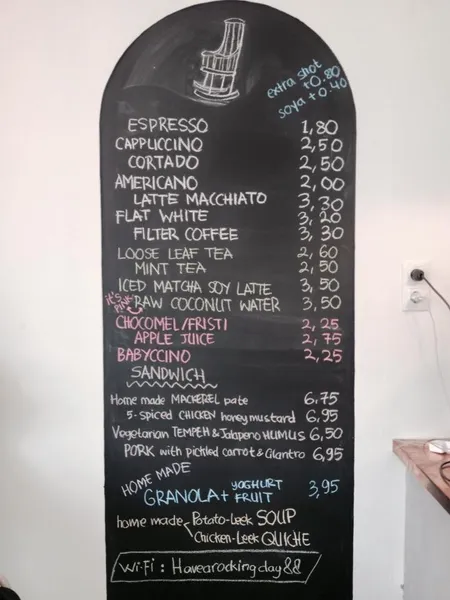 extra shot
+0.80
soya +0.40
ESPRESSO 1,80
CAPPUCCINO 2,50
CORTADO 2,50
AMERICANO 2,00
LATTE MACCHIATO 3,30
FLAT WHITE 3,20
FILTER COFFEE 3,30
LOOSE LEAF TEA 2,60
MINT TEA 2,50
ICED MATCHA SOY LATTE 3,50
it's PINK RAW COCONUT WATER 3,50
CHOCOMEL/FRISTI 2,25
APPLE JUICE 2,75
BABYCCINO 2,25
SANDWICH
Home made MACKEREL pate 6.75
5-spiced CHICKEN honey mustard 6,95
Vegetarian TEMPEH & Jalapeno HUMUS 6,50
PORK with pickled carrot & Cilantro 6,95
HOME MADE
GRANOLA + YOGHURT FRUIT 3,95
home made Potato-Leek SOUP
Chicken-Leek QUICHE
Wi-Fi : Havearockingday88